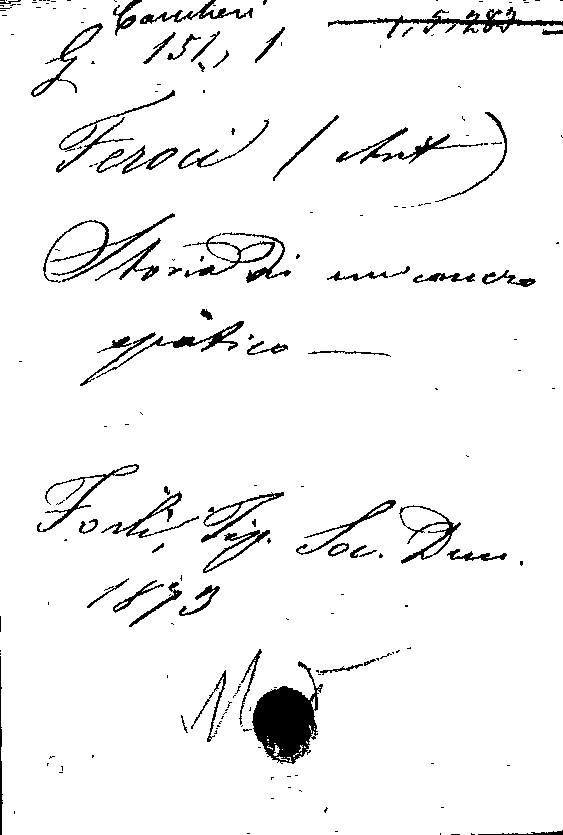 G. 151, 1
1, 5, 283
Feroci (Ant)
Storia di un cancro
epatico —
Forlì, Tip. Soc. Dem.
1873